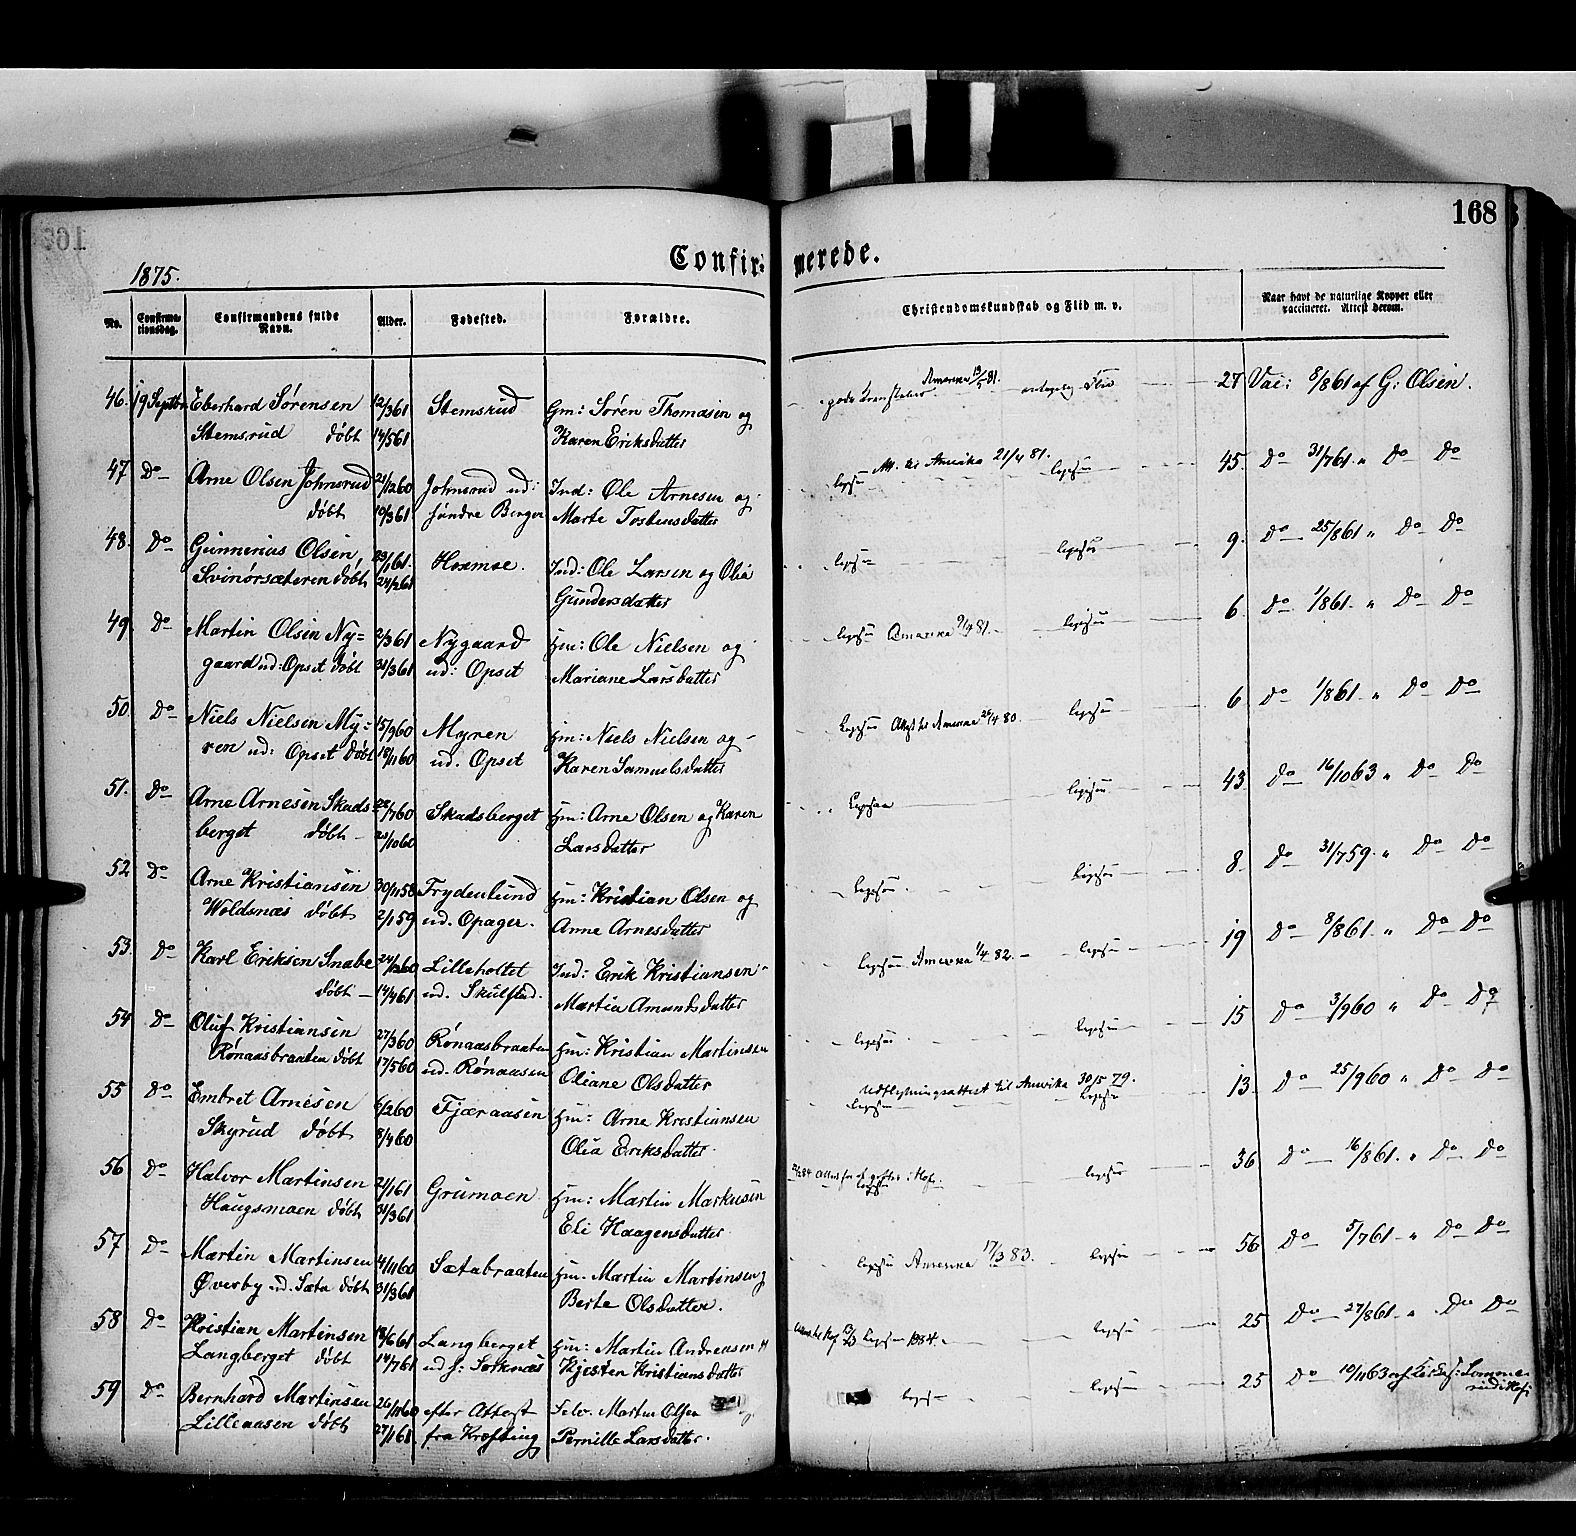 168
1875.
Confirmerede.
No. Confirmationsdag. Confirmandens fulde Navn. Alder. Fødested. Forældre. Christendomskundskab og Flid m. v. Naar havt de naturlige Kopper eller vaccineret. Attest derom.
46. 19 Septbr Eberhard Sørensen 12/3 61 Stemsrud Gm: Søren Thomasen og Amerika 13/5 81. gode Kundskaber antagelig Flid 27 Vac: 8/8 61 af G: Olsen.
Stemsrud døbt 14/5 61 Karen Eriksdatter
47 Do Arne Olsen Johnsrud 21/12 60 Johnsrud ud: Ind: Ole Arnesen og ligesaa Att. til Amerika 21/4 81. ligesaa 45 Do 31/7 61 " Do Do
døbt 10/3 61 søndre Berger Marte Tostensdatter
48. Do Gunnerius Olsen, 29/1 61. Hosmoe. Ind: Ole Larsen og Olia ligesaa ligesaa 9. Do 25/8 61 " Do Do
Svinørsæteren døbt 24/2 61 Gundersdatter
49. Do Martin Olsen Ny= 2/3 61 Nygaard Hm: Ole Nielsen og ligesaa Amerika 9/4 81. ligesaa 6. Do 1/8 61 " Do Do
gaard ud: Opset døbt 31/3 61 ud: Opset Mariane Larsdatter
50. Do Niels Nielsen My= 15/9 60 Myren Hm: Niels Nielsen og ligesaa Attest til Amerika 26/4 80. ligesaa 6 Do 1/8 61 " Do Do
ren ud: Opset døbt 18/11 60 ud. Opset Karen Samuelsdatter
51. Do Arne Arnesen Skads 22/7 60 Skadsberget Hm: Arne Olsen og Karen Ligesaa ligesaa 43 Do 16/10 63 " Do Do
berget døbt 21/10 60 Larsdatter
52 Do Arne Kristiansen 30/11 58 Frydenlund Hm: Kristian Olsen og ligesaa ligesaa 8. Do 31/7 59 " Do Do
Woldsnæs døbt 2/1 59 ud. Opager. Anne Arnesdatter
53. Do Karl Eriksen Snabe 24/12 60 Lilleholtet Ind: Erik Kristiansen ligesaa Amerika 1/4 82. ligesaa 19 Do 8/8 61 " Do Do
døbt 14/4 61 ud. Skulstad. Martia Amundsdatter
54 Do Oluf Kristiansen 27/3 60 Rønaasbraaten Hm: Kristian Martinsen ligesaa ligesaa 15 Do 3/9 60 " Do Do
Rønaasbraaten døbt 17/5 60 ud. Rønaasen Oliane Olsdatter
55 Do Embret Arnesen 6/2 60 Fjæraasen Hm: Arne Kristiansen Udflytningsattest til Amerika 30/5 79. ligesaa ligesaa 13. Do 25/9 60 " Do Do
Skyrud døbt 8/4 60 Olia Eriksdatter
56 Do Halvor Martinsen 21/1 61 Grumoen Hm: Martin Markusen ligesaa ligesaa 36 Do 16/8 61 " Do Do
Haugsmoen døbt 31/3 61 Eli Haagensdatter
57 Do Martin Martinsen 4/11 60 Sætabraaten Hm. Martin Martinsen og ligesaa Amerika 17/3 83. ligesaa 56 Do 5/7 61 " Do Do
Øverby ud. Sæta døbt 31/3 61 Berte Olsdatter.
58 Do Kristian Martinsen 18/6 61 Langberget Hm: Martin Andreasen ligesaa 1884. ligesaa 25 Do 27/8 61 " Do Do
Langberget døbt 14/7 61 ud s: Sorknæs Kjersten Kristiansdatter
59 Do Bernhard Martinsen 26/11 60 efter Attest Selv. Martin Olsen ligesaa ligesaa 25 Do 10/11 63 af
Lilleaasen døbt 27/1 61 fra Krøfting Pernille Larsdatter.